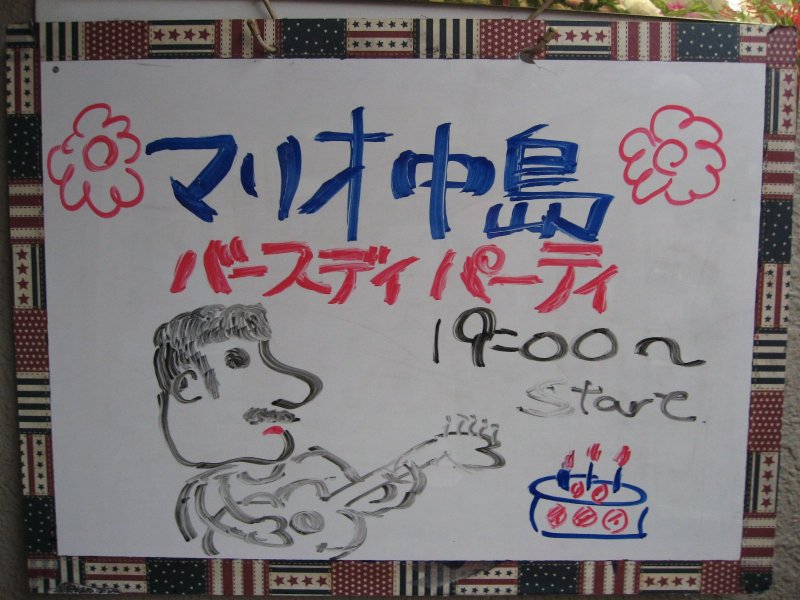 マリオ中島
バースディパーティ
19:00~
Start